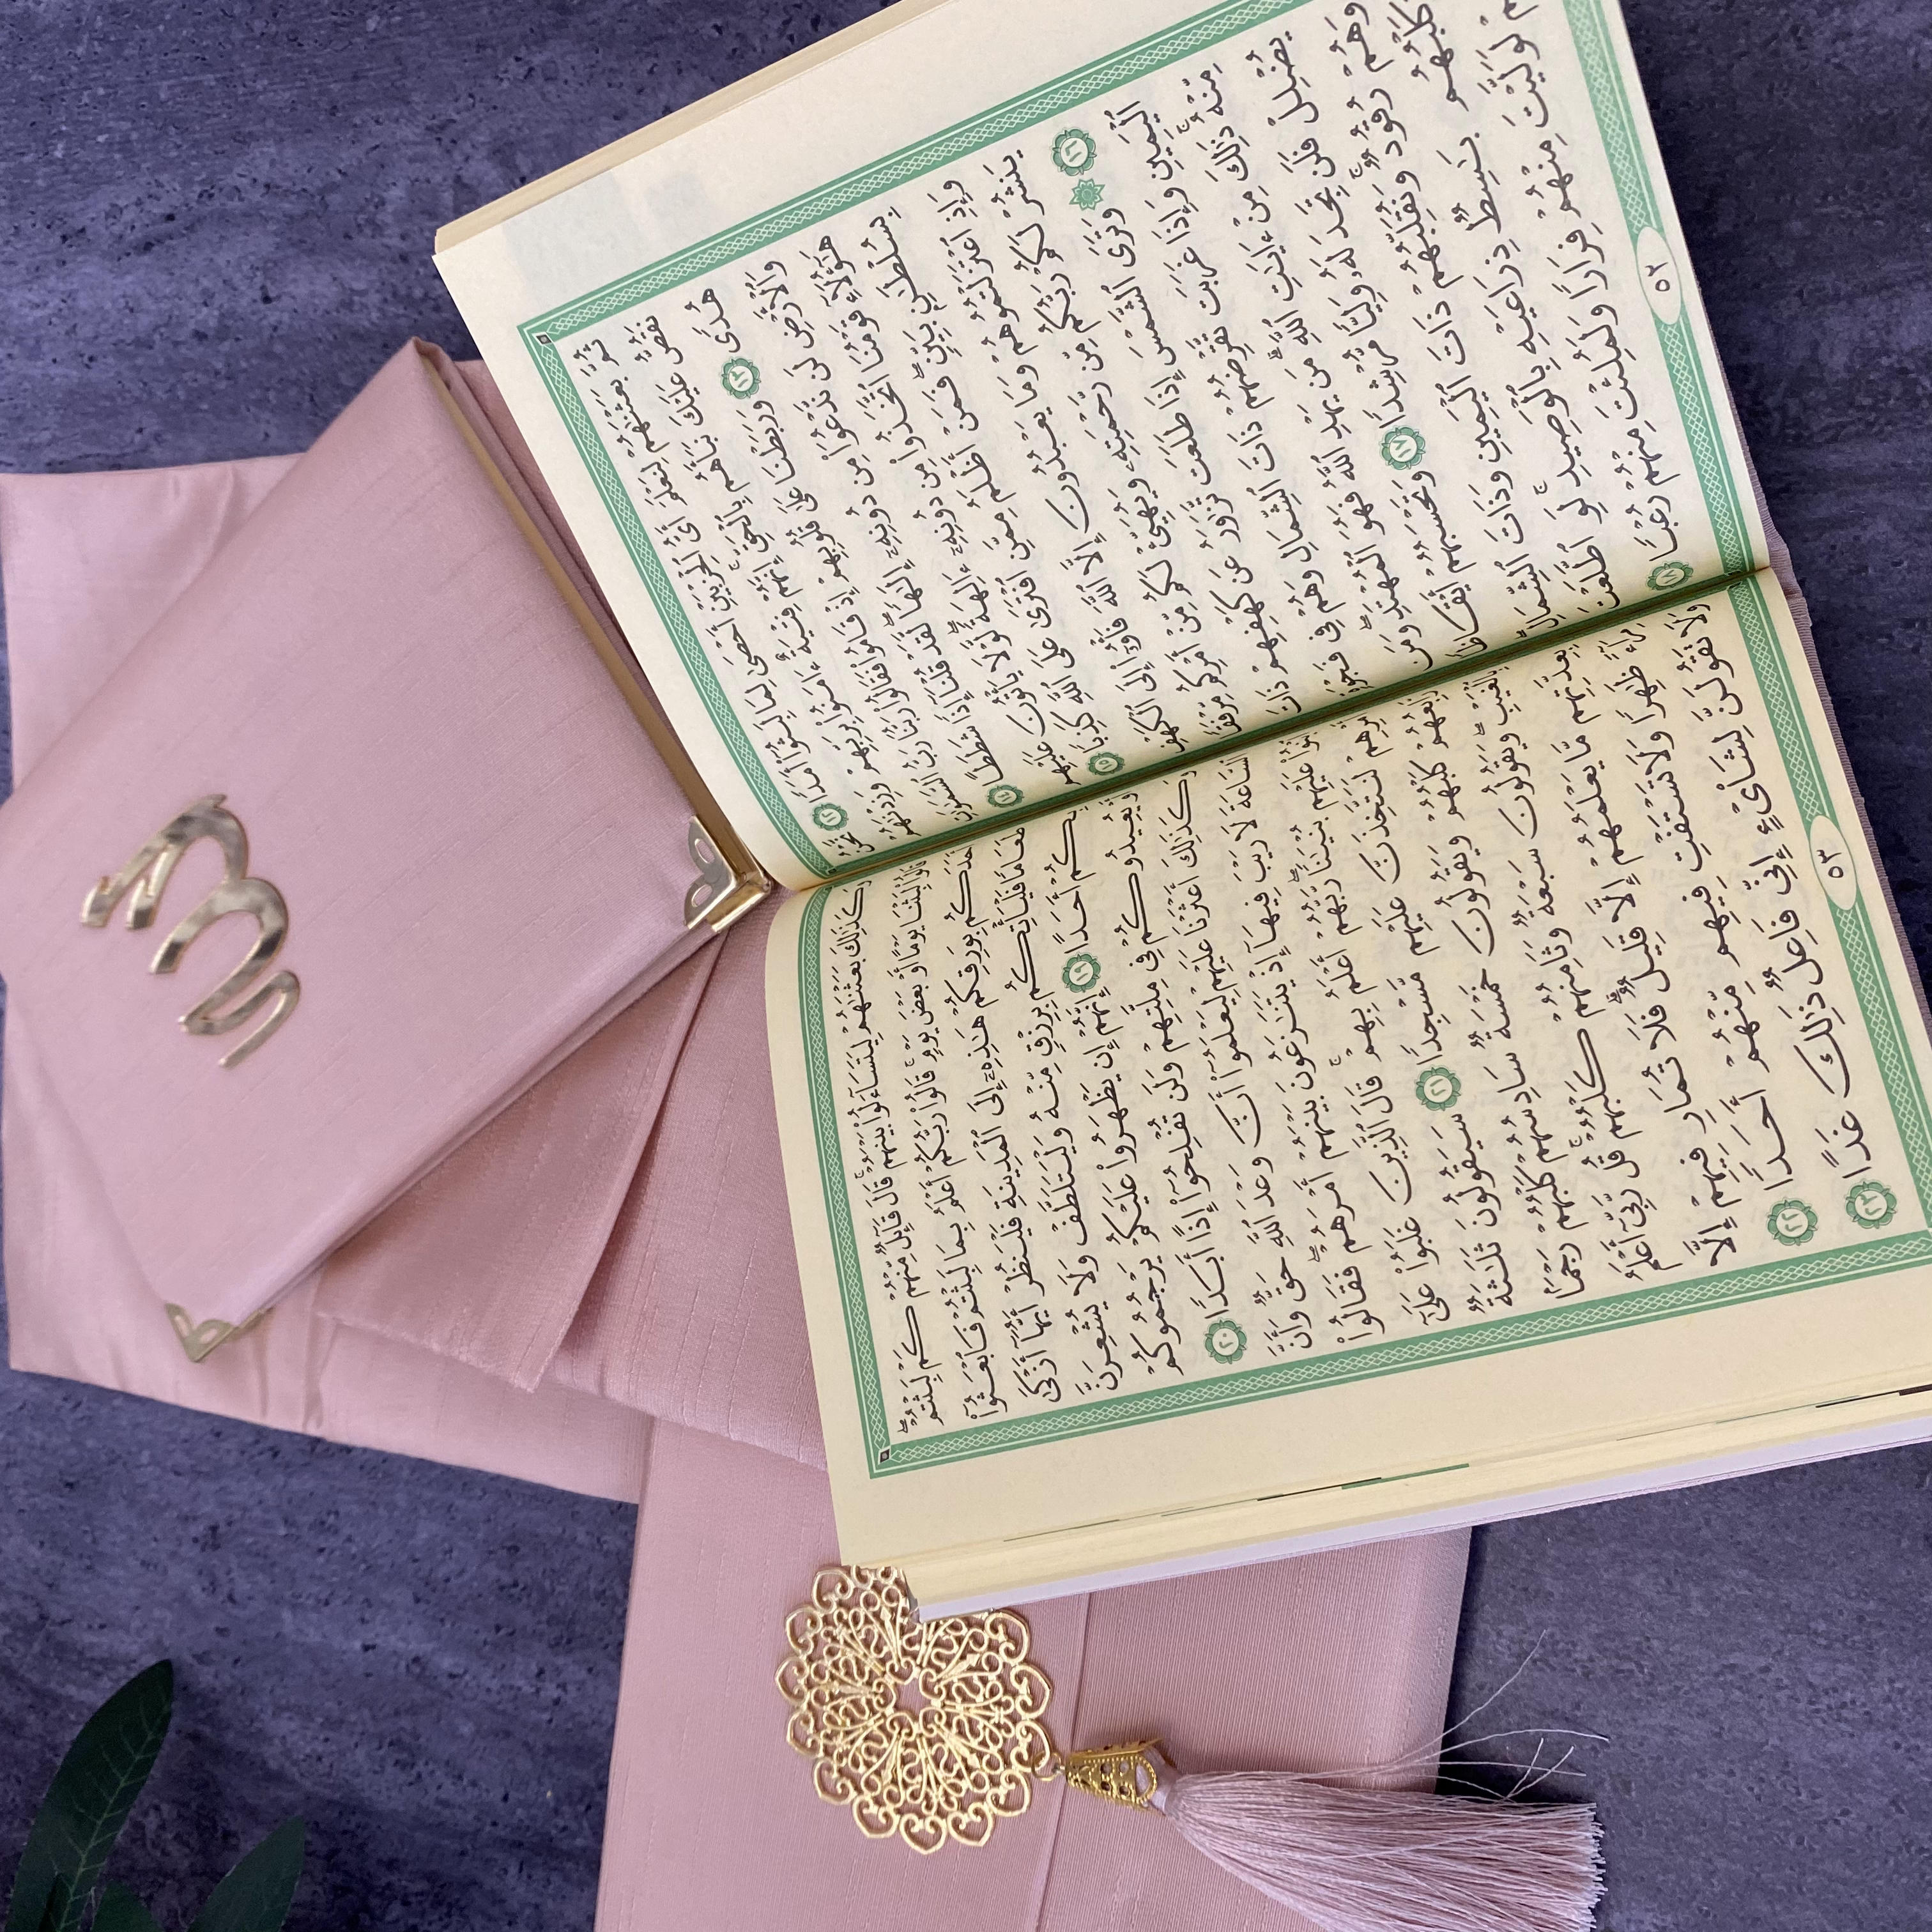 ثُمَّ بَعَثْنَٰهُمْ لِنَعْلَمَ أَىُّ ٱلْحِزْبَيْنِ أَحْصَىٰ لِمَا لَبِثُوٓا۟ أَمَدًا ١٢ نَّحْنُ
نَقُصُّ عَلَيْكَ نَبَأَهُم بِٱلْحَقِّۚ إِنَّهُمْ فِتْيَةٌ ءَامَنُوا۟ بِرَبِّهِمْ وَزِدْنَٰهُمْ
هُدًى ١٣ وَرَبَطْنَا عَلَىٰ قُلُوبِهِمْ إِذْ قَامُوا۟ فَقَالُوا۟ رَبُّنَا رَبُّ ٱلسَّمَٰوَٰتِ
وَٱلْأَرْضِ لَن نَّدْعُوَا۟ مِن دُونِهِۦٓ إِلَٰهًاۖ لَّقَدْ قُلْنَآ إِذًا شَطَطًا ١٤
هَٰٓؤُلَآءِ قَوْمُنَا ٱتَّخَذُوا۟ مِن دُونِهِۦٓ ءَالِهَةًۖ لَّوْلَا يَأْتُونَ عَلَيْهِم
بِسُلْطَٰنٍۭ بَيِّنٍۖ فَمَنْ أَظْلَمُ مِمَّنِ ٱفْتَرَىٰ عَلَى ٱللَّهِ كَذِبًا ١٥
وَإِذِ ٱعْتَزَلْتُمُوهُمْ وَمَا يَعْبُدُونَ إِلَّا ٱللَّهَ فَأْوُۥٓا۟ إِلَى ٱلْكَهْفِ
يَنشُرْ لَكُمْ رَبُّكُم مِّن رَّحْمَتِهِۦ وَيُهَيِّئْ لَكُم مِّنْ أَمْرِكُم مِّرْفَقًا
١٦ ۞ وَتَرَى ٱلشَّمْسَ إِذَا طَلَعَت تَّزَٰوَرُ عَن كَهْفِهِمْ ذَاتَ
ٱلْيَمِينِ وَإِذَا غَرَبَت تَّقْرِضُهُمْ ذَاتَ ٱلشِّمَالِ وَهُمْ فِى فَجْوَةٍ
مِّنْهُۚ ذَٰلِكَ مِنْ ءَايَٰتِ ٱللَّهِۗ مَن يَهْدِ ٱللَّهُ فَهُوَ ٱلْمُهْتَدِۖ وَمَن
يُضْلِلْ فَلَن تَجِدَ لَهُۥ وَلِيًّا مُّرْشِدًا ١٧ وَتَحْسَبُهُمْ أَيْقَاظًا
وَهُمْ رُقُودٌۚ وَنُقَلِّبُهُمْ ذَاتَ ٱلْيَمِينِ وَذَاتَ ٱلشِّمَالِۖ
وَكَلْبُهُم بَٰسِطٌ ذِرَاعَيْهِ بِٱلْوَصِيدِۚ لَوِ ٱطَّلَعْتَ
لَوَلَّيْتَ مِنْهُمْ فِرَارًا وَلَمُلِئْتَ مِنْهُمْ رُعْبًا ١٨
٥٢
وَكَذَٰلِكَ بَعَثْنَٰهُمْ لِيَتَسَآءَلُوا۟ بَيْنَهُمْۚ قَالَ قَآئِلٌ مِّنْهُمْ كَمْ لَبِثْتُمْۖ
قَالُوا۟ لَبِثْنَا يَوْمًا أَوْ بَعْضَ يَوْمٍۚ قَالُوا۟ رَبُّكُمْ أَعْلَمُ بِمَا لَبِثْتُمْ فَٱبْعَثُوٓا۟
أَحَدَكُم بِوَرِقِكُمْ هَٰذِهِۦٓ إِلَى ٱلْمَدِينَةِ فَلْيَنظُرْ أَيُّهَآ أَزْكَىٰ
طَعَامًا فَلْيَأْتِكُم بِرِزْقٍ مِّنْهُ وَلْيَتَلَطَّفْ وَلَا يُشْعِرَنَّ
بِكُمْ أَحَدًا ١٩ إِنَّهُمْ إِن يَظْهَرُوا۟ عَلَيْكُمْ يَرْجُمُوكُمْ
أَوْ يُعِيدُوكُمْ فِى مِلَّتِهِمْ وَلَن تُفْلِحُوٓا۟ إِذًا أَبَدًا ٢٠
وَكَذَٰلِكَ أَعْثَرْنَا عَلَيْهِمْ لِيَعْلَمُوٓا۟ أَنَّ وَعْدَ ٱللَّهِ حَقٌّ وَأَنَّ
ٱلسَّاعَةَ لَا رَيْبَ فِيهَآ إِذْ يَتَنَٰزَعُونَ بَيْنَهُمْ أَمْرَهُمْۖ فَقَالُوا۟
ٱبْنُوا۟ عَلَيْهِم بُنْيَٰنًاۖ رَّبُّهُمْ أَعْلَمُ بِهِمْۚ قَالَ ٱلَّذِينَ غَلَبُوا۟ عَلَىٰٓ
أَمْرِهِمْ لَنَتَّخِذَنَّ عَلَيْهِم مَّسْجِدًا ٢١ سَيَقُولُونَ ثَلَٰثَةٌ
رَّابِعُهُمْ كَلْبُهُمْ وَيَقُولُونَ خَمْسَةٌ سَادِسُهُمْ كَلْبُهُمْ رَجْمًۢا
بِٱلْغَيْبِۖ وَيَقُولُونَ سَبْعَةٌ وَثَامِنُهُمْ كَلْبُهُمْۚ قُل رَّبِّىٓ أَعْلَمُ
بِعِدَّتِهِم مَّا يَعْلَمُهُمْ إِلَّا قَلِيلٌۗ فَلَا تُمَارِ فِيهِمْ إِلَّا
مِرَآءً ظَٰهِرًا وَلَا تَسْتَفْتِ فِيهِم مِّنْهُمْ أَحَدًا ٢٢
وَلَا تَقُولَنَّ لِشَا۟ىْءٍ إِنِّى فَاعِلٌ ذَٰلِكَ غَدًا ٢٣
٥٣